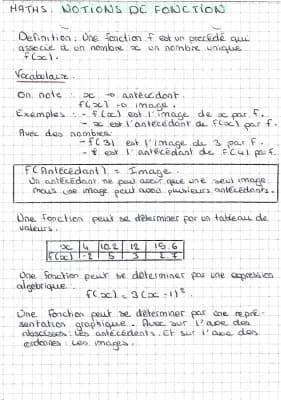 MATHS : NOTIONS DE FONCTION
Définition : Une fonction f est un procédé qui
associe à un nombre x un nombre unique
f(x).
Vocabulaire
On note : x → antécédent.
f(x) → image.
Exemples : - f(x) est l'image de x par f.
- x est l'antécédent de f(x) par f.
Avec des nombres
- f(3) est l'image de 3 par f.
- 4 est l'antécédent de f(4) par f.
f(Antécédant) = Image.
Un antécédent ne peut avoir que une seul image
mais une image peut avoir plusieurs antécédents.
Une fonction peut se déterminer par un tableau de
valeurs.
x 4 10.2 12 15.6
f(x) -2 5 3 2.7
Une fonction peut se déterminer par une expression
algébrique :
f(x) = 3(x-1)².
Une fonction peut se déterminer par une repré-
sentation graphique. Avec sur l'axe des
abscisses : Les antécédents. Et sur l'axe des
ordonnées : Les images.